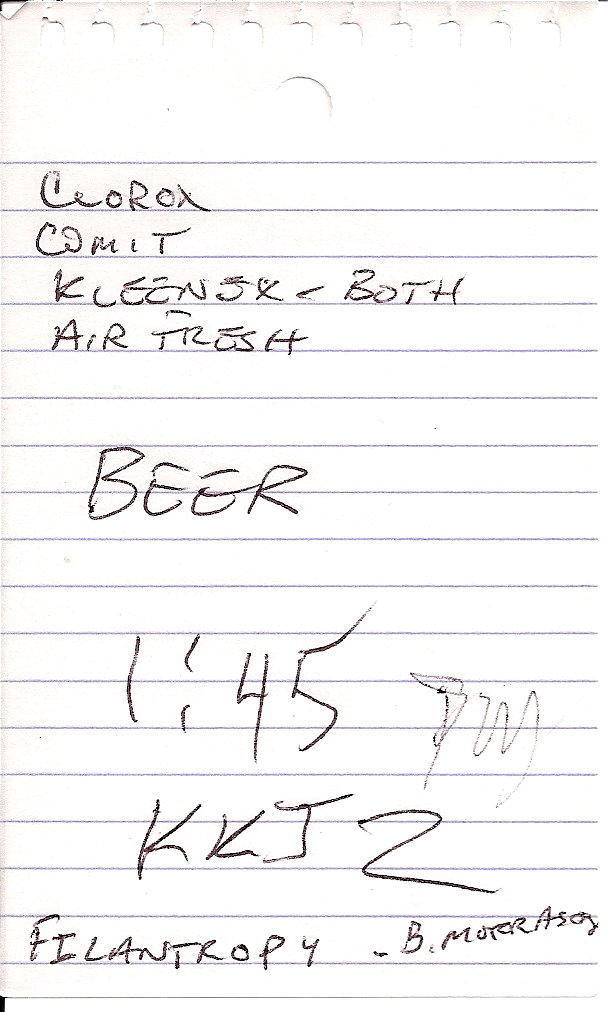 CLOROX
COMIT
KLEENEX - BOTH
AIR FRESH
BEER
1:45 PM
KKJZ
FILANTROPY - B.